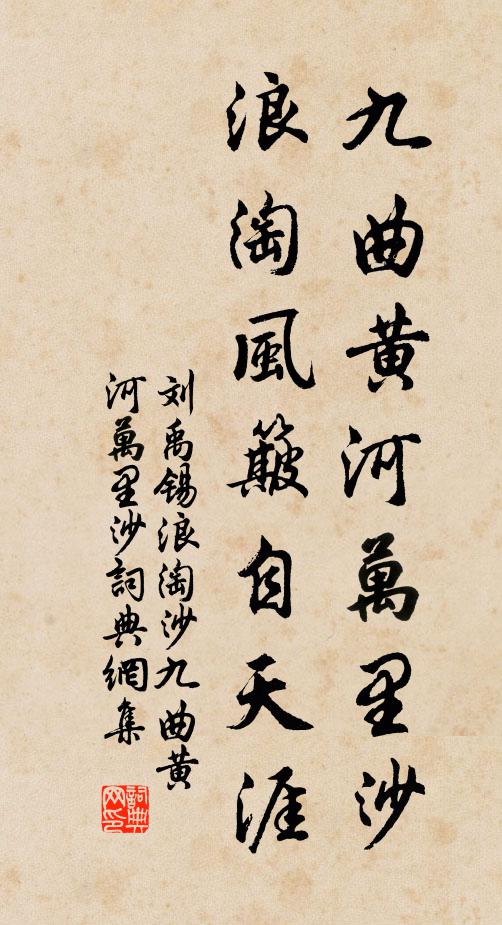 九曲黄河萬里沙
浪淘風簸自天涯
刘禹锡浪淘沙九曲黄
河萬里沙詞典網集
詞典
网印